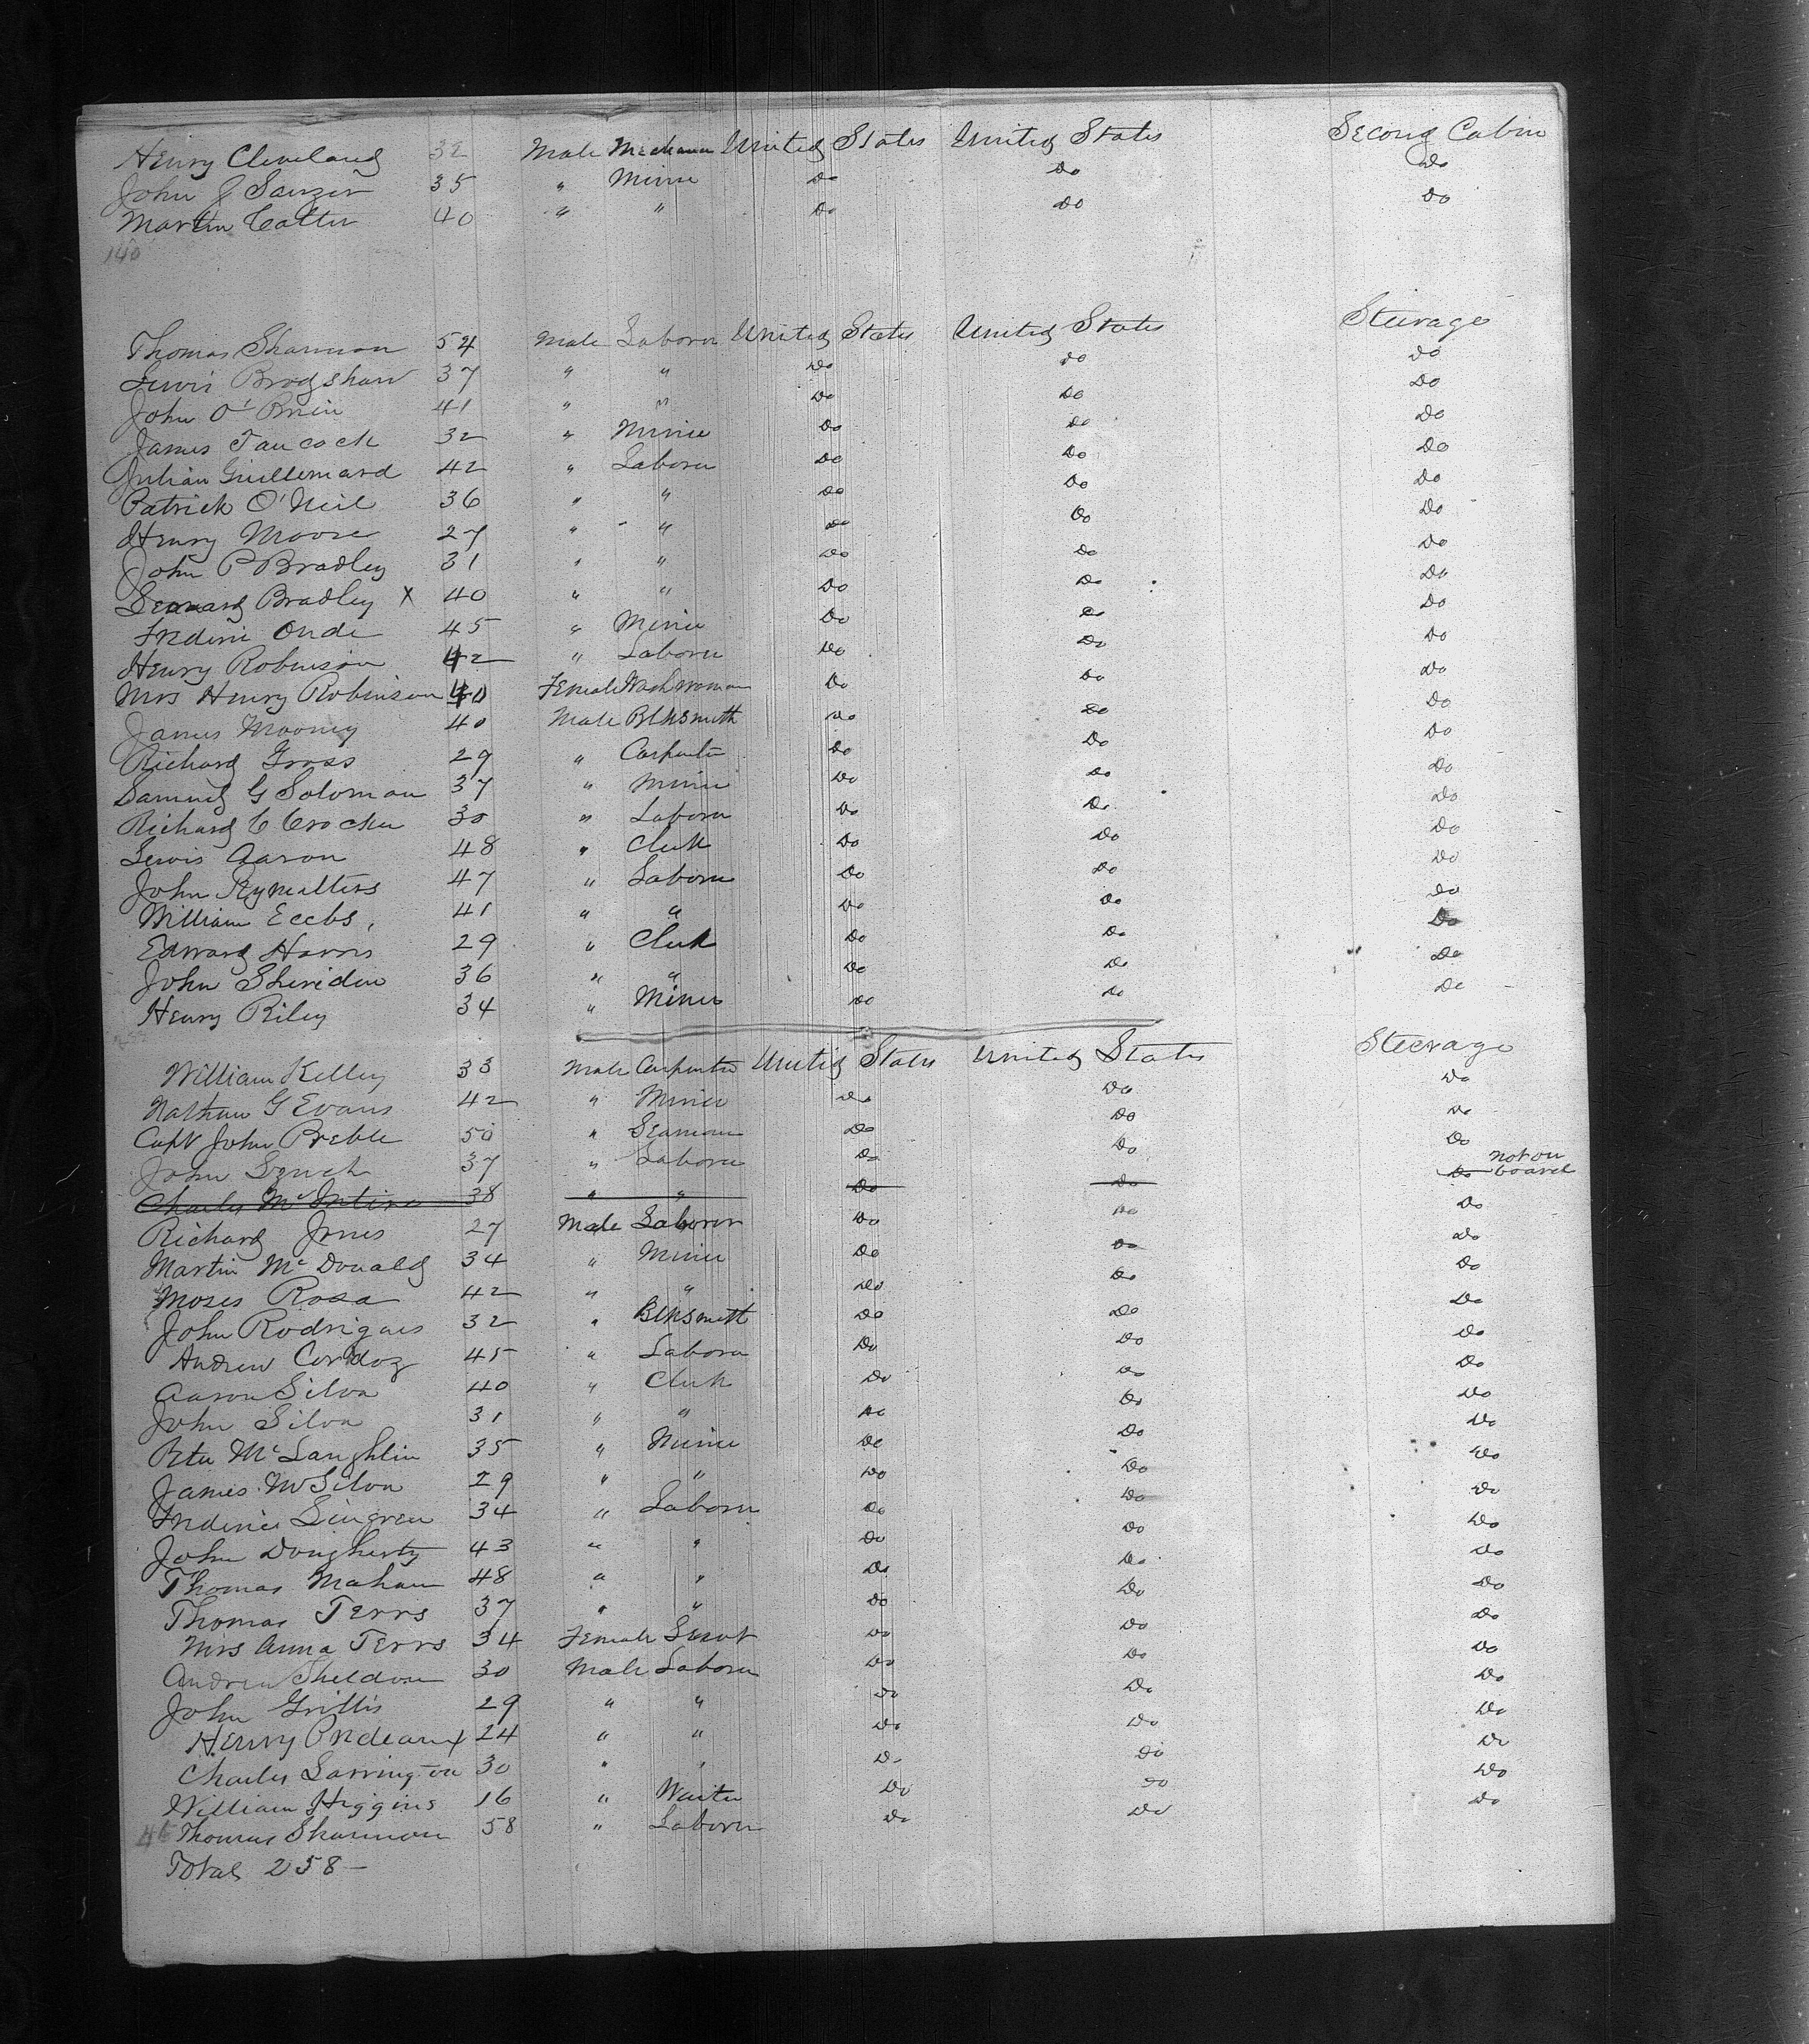 Henry Cleveland 32 Male Mechanic United States United States Second Cabin
John J Sawzer 35 " Miner Do Do Do
Martin Catter 40 " " Do Do Do
140
Thomas Shannon 54 Male Laborer United States United States Steerage
Lewis Bradshaw 37 " " Do Do Do
John O'Brien 41 " " Do Do Do
James Taucock 32 " Miner Do Do Do
Julian Guillemard 42 " Laborer Do Do Do
Patrick O'Neil 36 " " Do Do Do
Henry Moore 27 " " Do Do Do
John P Bradley 31 " " Do Do Do
Leonard Bradley X 40 " " Do Do Do
Frederic Onde 45 " Miner Do Do Do
Henry Robinson 42 " Laborer Do Do Do
Mrs Henry Robinson 40 Female Wash Woman Do Do Do
James Mooney 40 Male Blksmith Do Do Do
Richard Gross 29 " Carpenter Do Do Do
Samuel G Soloman 37 " Miner Do Do Do
Richard C Crocker 30 " Laborer Do Do Do
Lewis Aaron 48 " Clerk Do Do Do
John Rymalters 47 " Laborer Do Do Do
William Eccbs, 41 " " Do Do Do
Edward Harris 29 " Clerk Do Do Do
John Sheriden 36 " " Do Do Do
Henry Riley 34 " Miner Do Do Do
William Kelley 33 Male Carpenter United States United States Steerage
Nathan G Evans 42 " Miner Do Do Do
Capt John Preble 50 " Seaman Do Do Do
John Lynch 37 " Laborer Do Do Do
Charles McIntire 38 " " Do Do Do not on board
Richard Jones 27 Male Laborer Do Do Do
Martin McDonald 34 " Miner Do Do Do
Moses Rosa 42 " " Do Do Do
John Rodrigues 32 " Blksmith Do Do Do
Andrew Cordoz 45 " Laborer Do Do Do
Aaron Silva 40 " Clerk Do Do Do
John Silva 31 " " Do Do Do
Peter McLaughlin 35 " Miner Do Do Do
James M Silva 29 " " Do Do Do
Frederic Lingren 34 " Laborer Do Do Do
John Dougherty 43 " " Do Do Do
Thomas Mahan 48 " " Do Do Do
Thomas Terrs 37 " " Do Do Do
Mrs Anna Terrs 34 Female Servt Do Do Do
Andrew Sheldon 30 Male Laborer Do Do Do
John Grillis 29 " " Do Do Do
Henry Prideaux 24 " " Do Do Do
Charles Larrington 30 " " Do Do Do
William Higgins 16 " Waiter Do Do Do
Thomas Shannon 58 " Laborer Do Do Do
Total 258 —